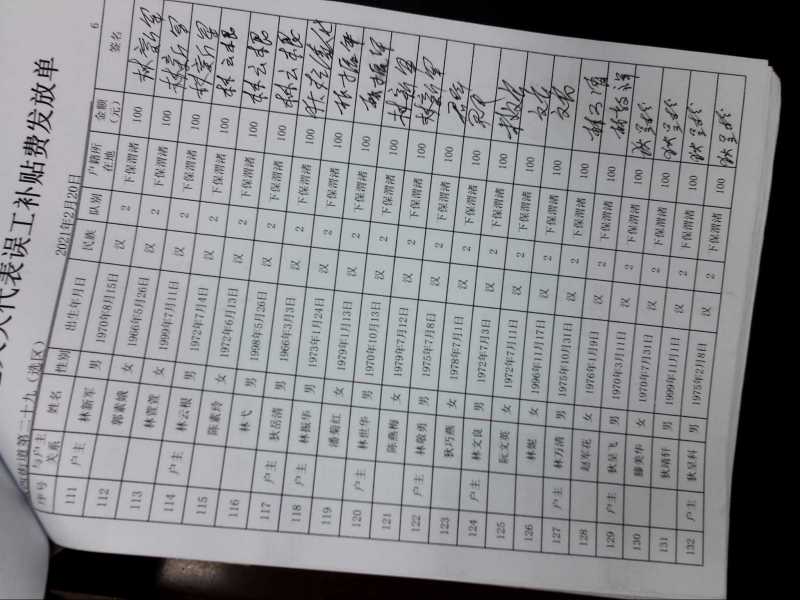 人大代表误工补贴费发放单
街道第二十九（选区） 2021年2月20日 6
序号 与户主关系 姓名 性别 出生年月日 民族 队别 户籍所在地 金额（元） 签名
111 户主 林新军 男 1970年8月15日 汉 2 下保渭渚 100 林新军
112 郭素娥 女 1966年5月26日 汉 2 下保渭渚 100 林新军
113 林萱萱 女 1999年7月11日 汉 2 下保渭渚 100 林新军
114 户主 林云根 男 1972年7月4日 汉 2 下保渭渚 100 林云根
115 陈素玲 女 1972年6月13日 汉 2 下保渭渚 100 林云根
116 林弋 男 1998年5月26日 汉 2 下保渭渚 100 林云根
117 户主 狄岳清 男 1966年3月3日 汉 2 下保渭渚 100
118 户主 林振华 男 1973年1月24日 汉 2 下保渭渚 100
119 潘菊红 女 1979年1月13日 汉 2 下保渭渚 100
120 户主 林世华 男 1970年10月13日 汉 2 下保渭渚 100 林新军
121 陈燕梅 女 1979年7月12日 汉 2 下保渭渚 100 林新军
122 户主 林敬勇 男 1975年7月8日 汉 2 下保渭渚 100
123 狄巧燕 女 1978年7月1日 汉 2 下保渭渚 100
124 户主 林文良 男 1972年7月3日 汉 2 下保渭渚 100
125 阮文英 女 1972年7月11日 汉 2 下保渭渚 100
126 林妮 女 1996年11月17日 汉 2 下保渭渚 100
127 户主 林万清 男 1975年10月31日 汉 2 下保渭渚 100
128 赵军花 女 1976年1月9日 汉 2 下保渭渚 100
129 户主 狄呈飞 男 1970年3月11日 汉 2 下保渭渚 100
130 滕美华 女 1970年7月31日 汉 2 下保渭渚 100
131 狄靖轩 男 1999年11月1日 汉 2 下保渭渚 100
132 户主 狄呈科 男 1975年2月8日 汉 2 下保渭渚 100